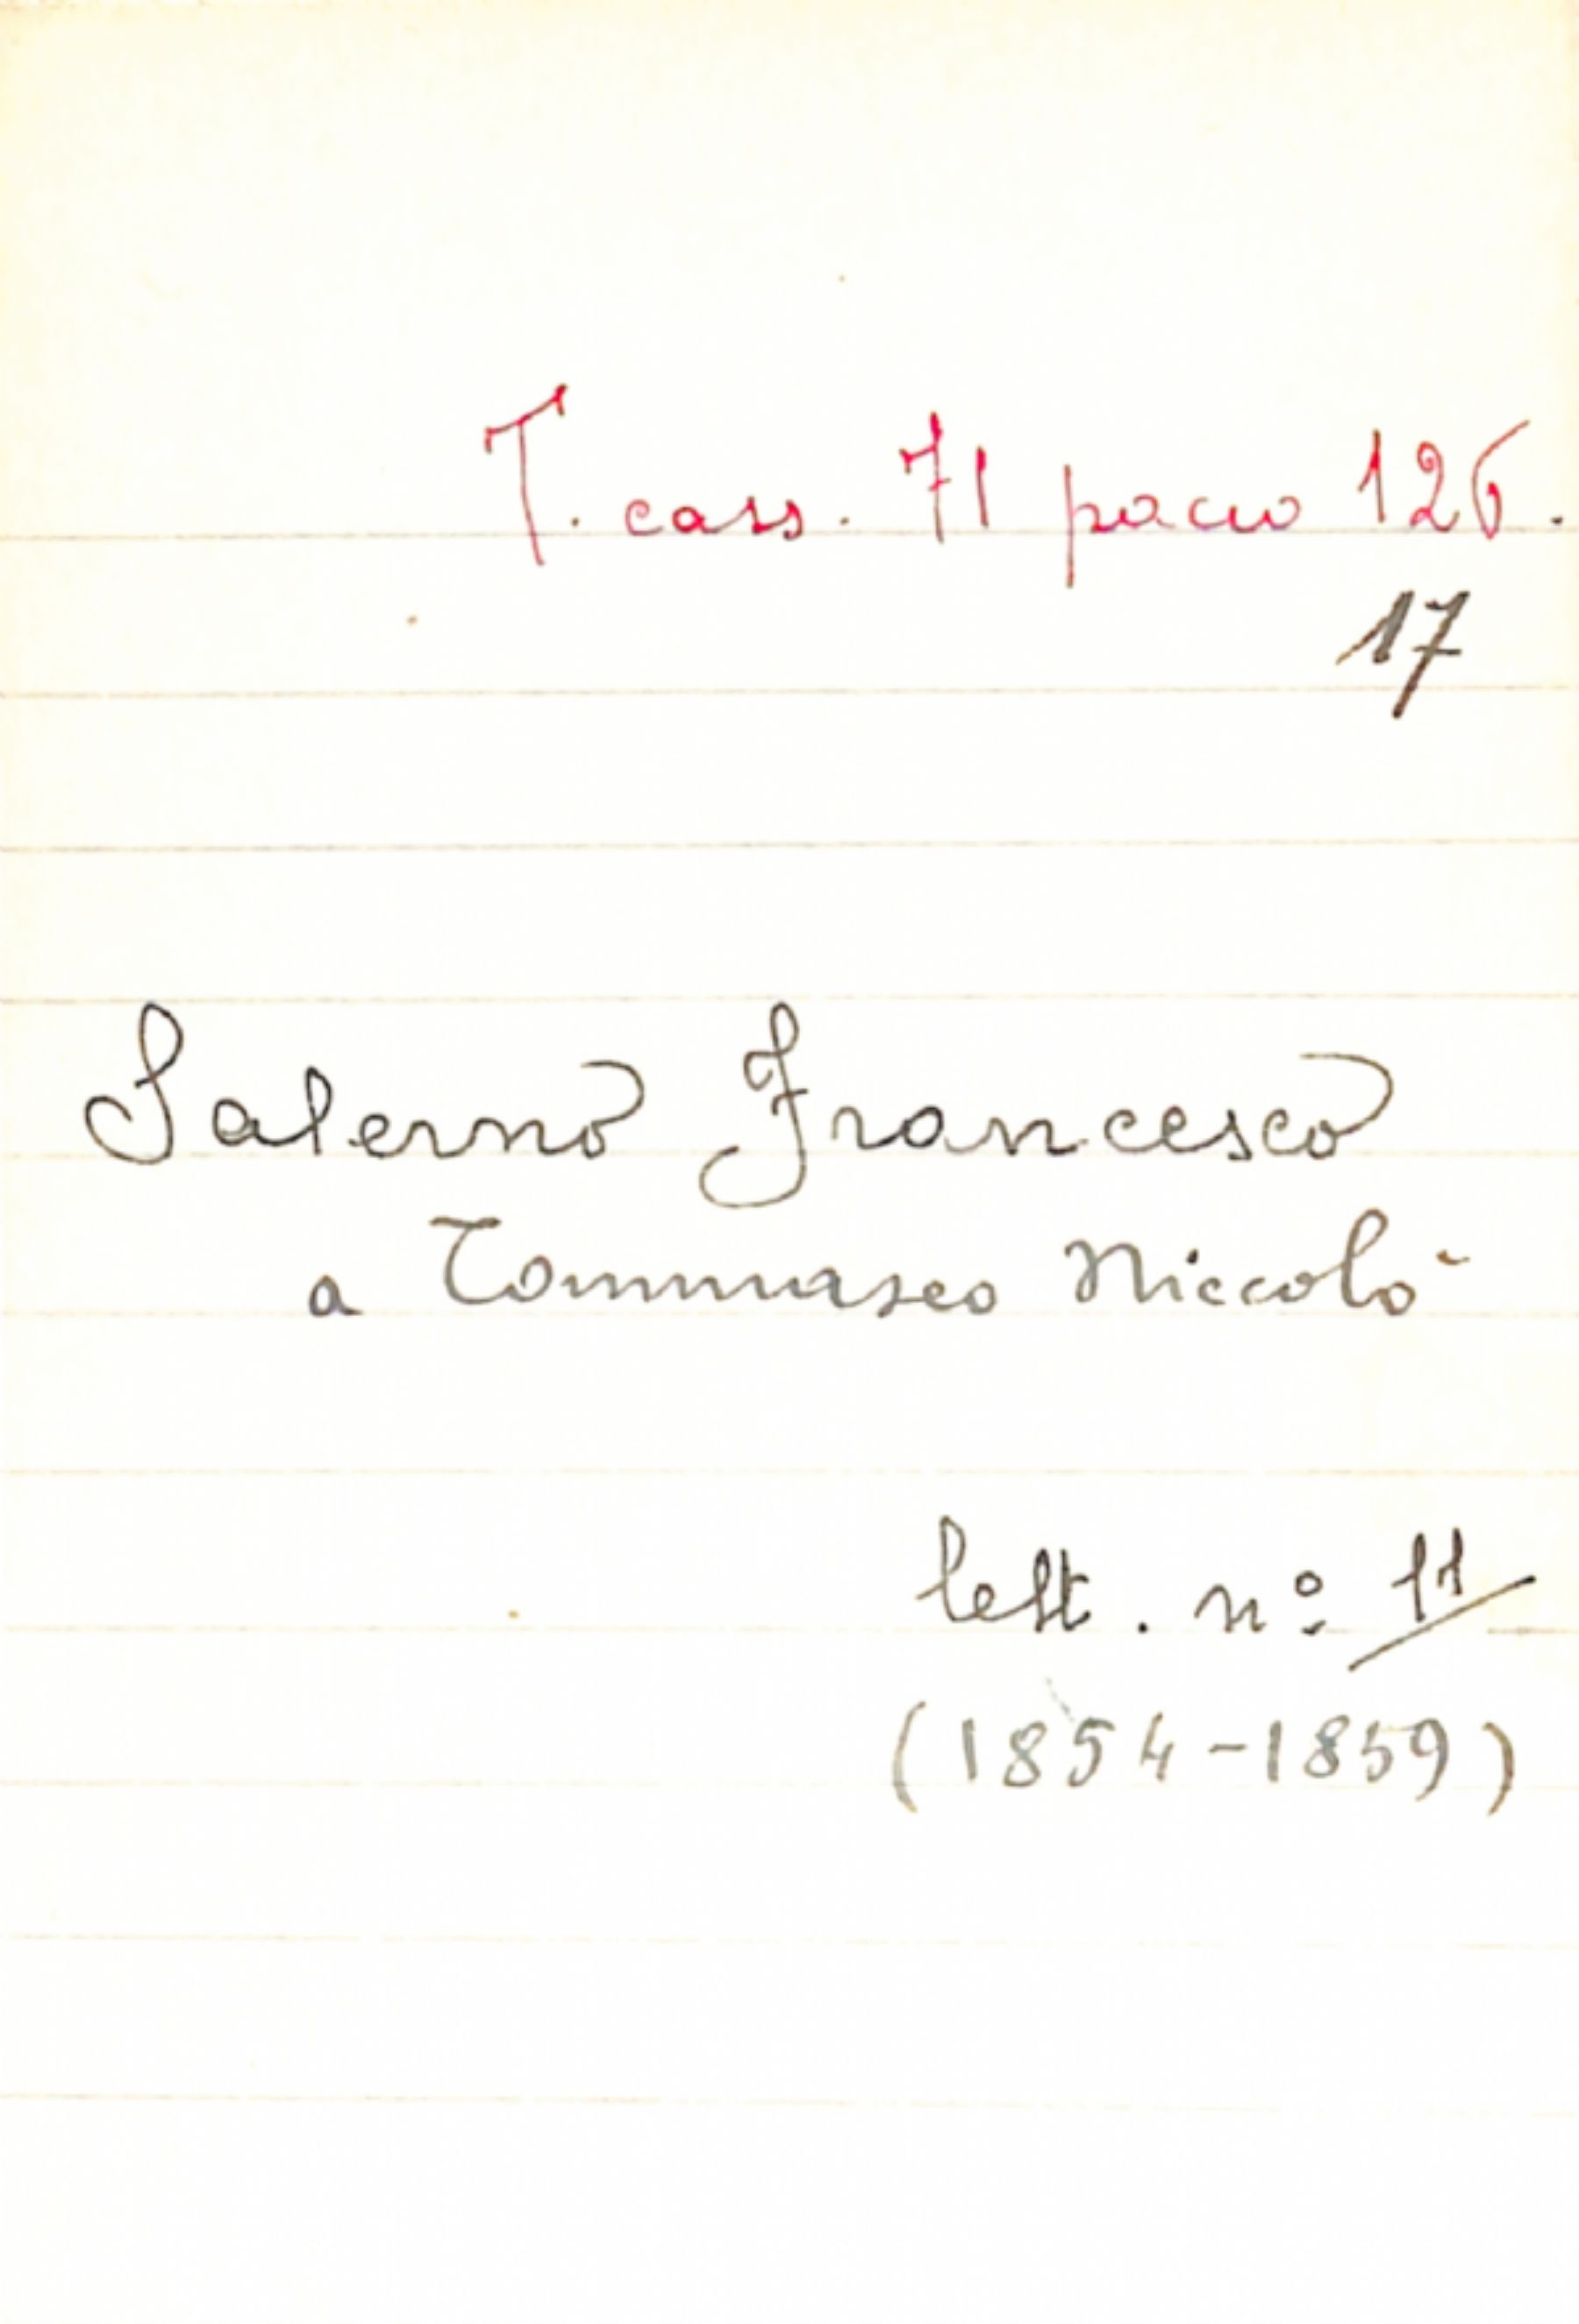 T. cass. 71 pacco 126.
17
Salerno Francesco
a Tommaseo Niccolò
lett. nº 11
(1854-1859)